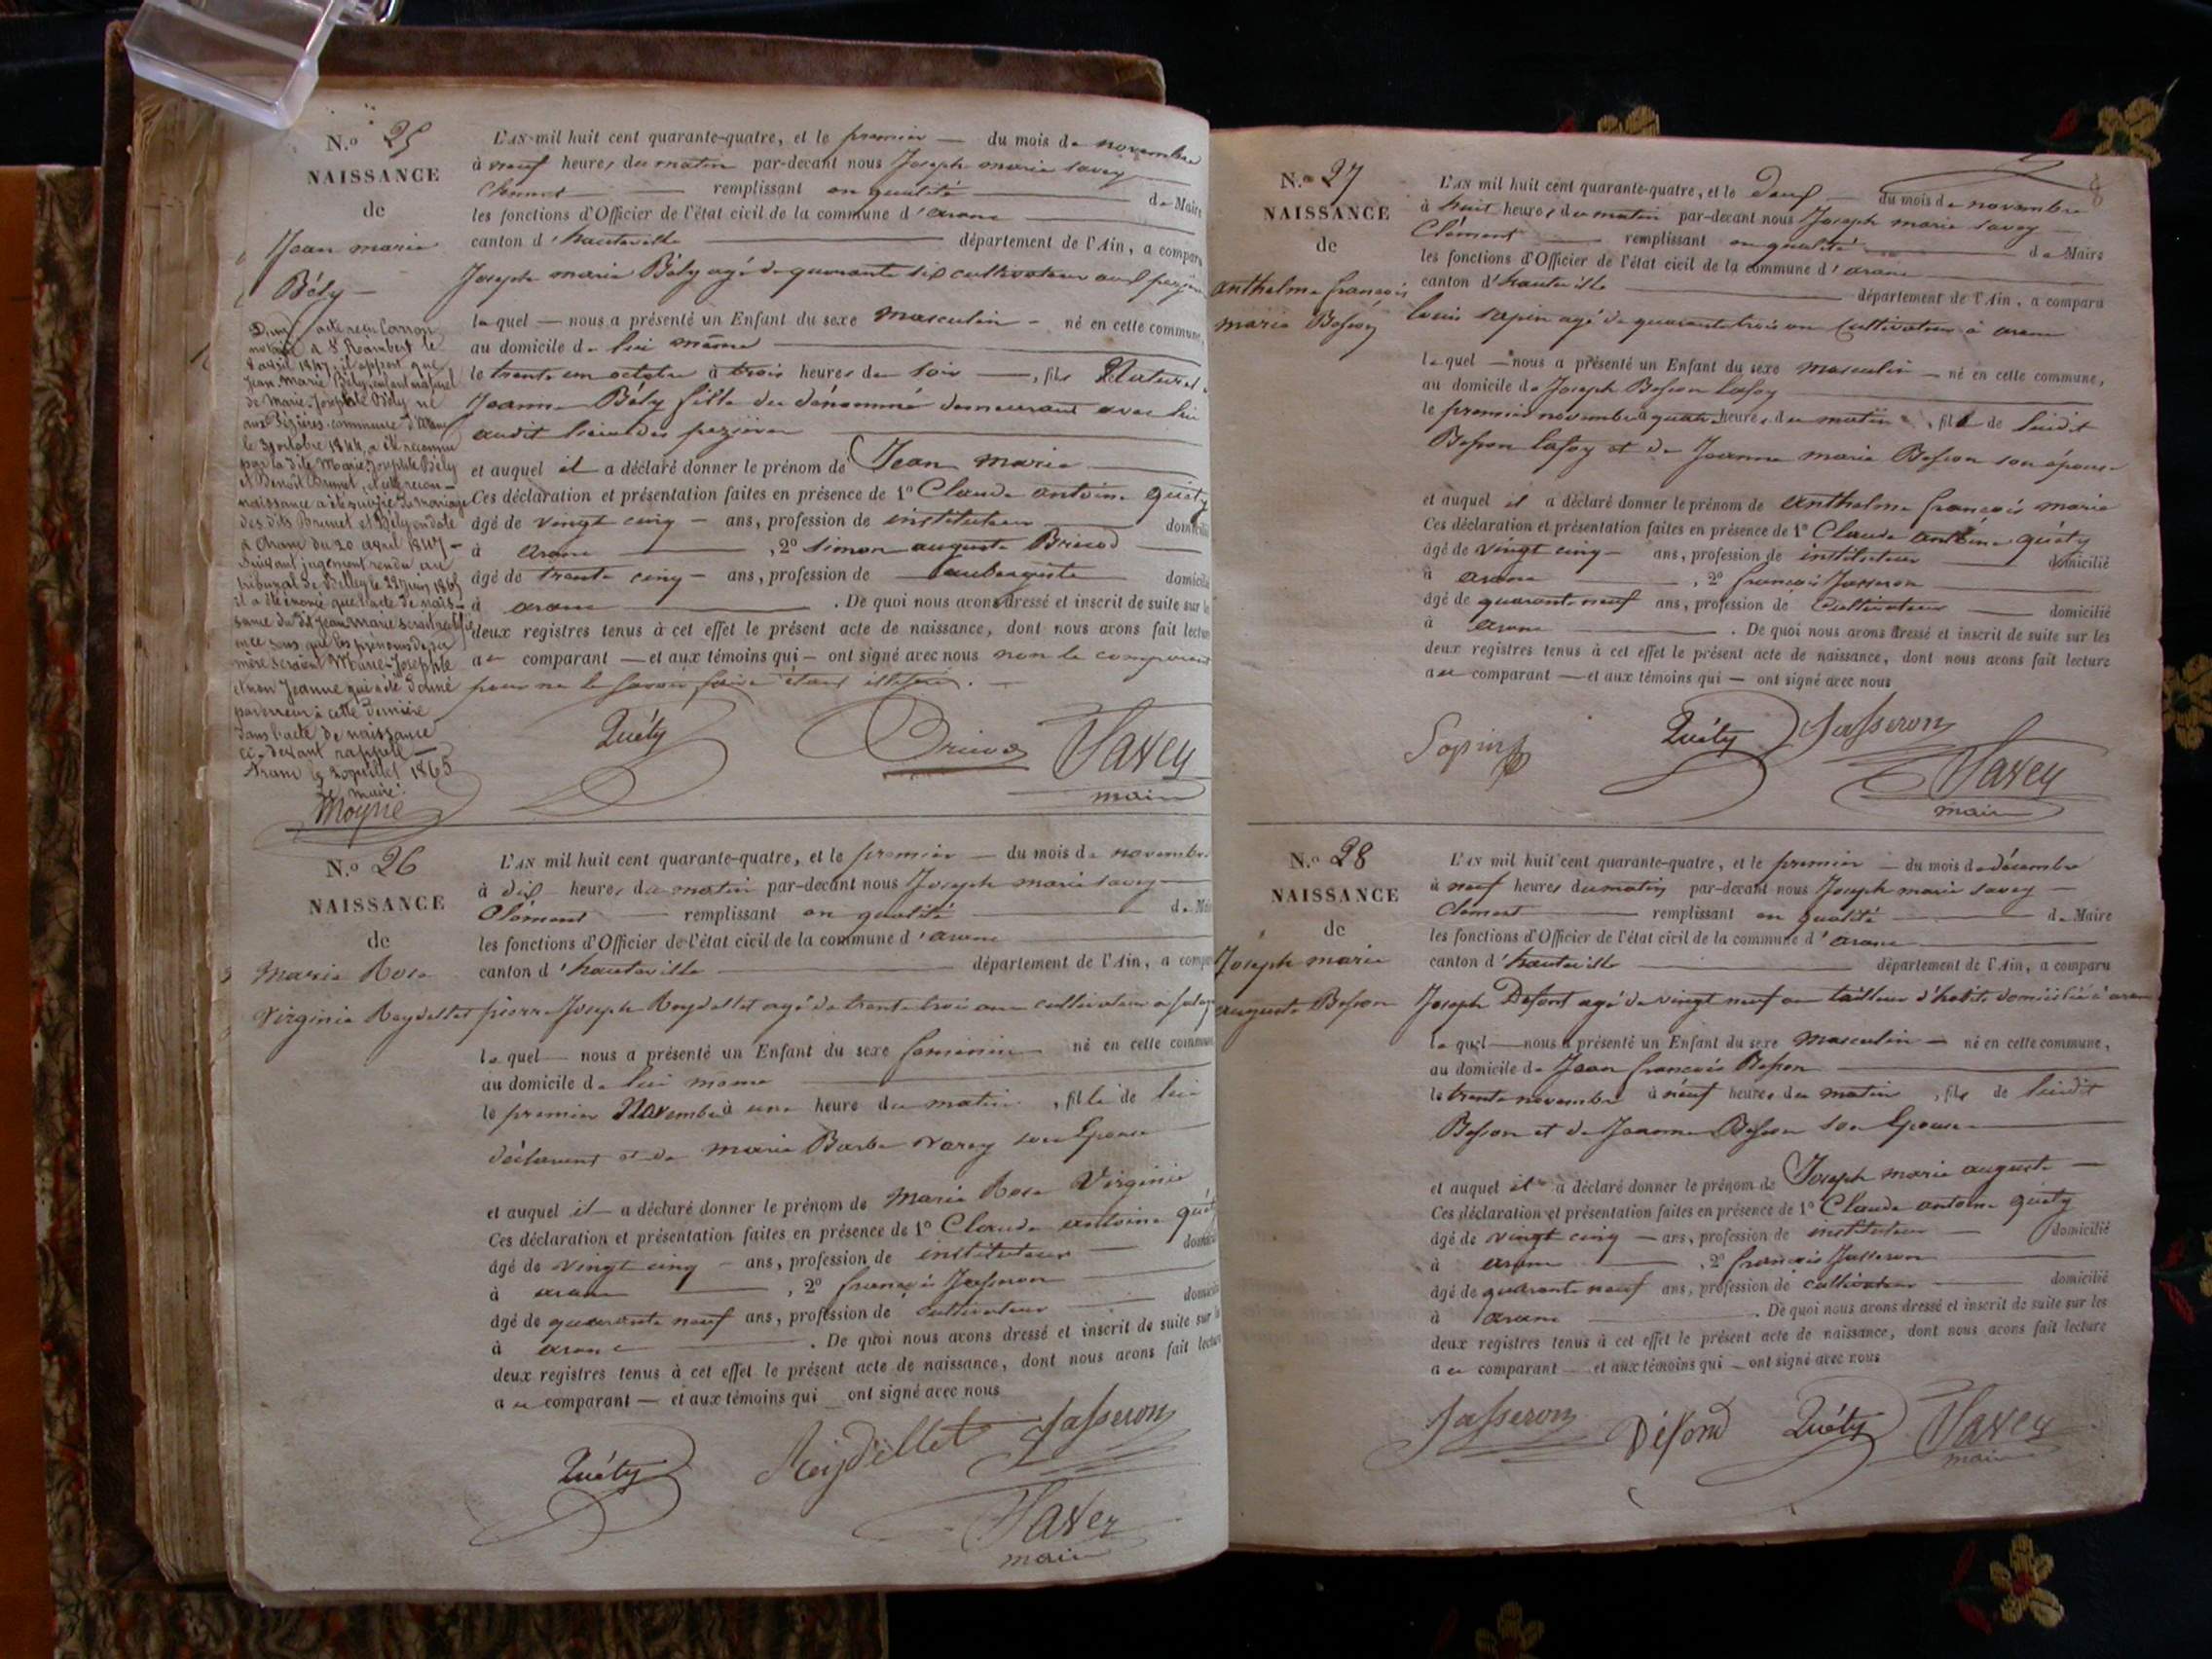 N.o 25
NAISSANCE
de
Jean marie
Bély
D'un acte reçu Carron
notaire à St Rambert le
8 avril 1847, il appert que
Jean Marie Bély, enfant naturel
de Marie-Josephte Bély né
aux Pézières commune d'Aranc
le 31 octobre 1844, a été reconnu
par la dite Marie Josephte Bély
et Benoit Brunet, cette recon-
naissance a été suivie du mariage
des dits Brunet et Bély en date
à Aranc du 20 avril 1847 -
Suivant jugement rendu au
tribunal de Belley le 22 juin 1865
il a été énoncé que l'acte de nais-
sance du dit Jean Marie serait rectifié
en ce sens que les prénoms de sa
mère seraient Marie-Josephte
et non Jeanne qui a été donné
par erreur à cette dernière
dans l'acte de naissance
ci-devant rappelé
Aranc le juillet 1865
Le maire:
Moyne
L'AN mil huit cent quarante-quatre, et le premier du mois de novembre
à neuf heures du matin par-devant nous Joseph marie savey
Clément remplissant en qualité de Maire
les fonctions d'Officier de l'état civil de la commune d'aranc
canton d'hauteville département de l'Ain, a comparu
Joseph marie Bély agé de quarante dix cultivateur
lequel nous a présenté un Enfant du sexe masculin né en cette commune,
au domicile de lui même
le trente un octobre à trois heures du soir, fils Naturel
Jeanne Bély fille du dénommé demeurant avec lui
audit lieu des pezieres
et auquel il a déclaré donner le prénom de Jean marie
Ces déclaration et présentation faites en présence de 1° Claude antoine quéty
âgé de vingt cinq ans, profession de instituteur domicilié
à aranc, 2° simon auguste Brucod
âgé de trente cinq ans, profession de aubergiste domicilié
à aranc. De quoi nous avons dressé et inscrit de suite sur les
deux registres tenus à cet effet le présent acte de naissance, dont nous avons fait lecture
au comparant et aux témoins qui ont signé avec nous non le comparant
pour ne le savoir faire étant illitéré.
Quéty Savey
maire
N.o 26
NAISSANCE
de
Marie Rose
Virginie Reydellet
L'AN mil huit cent quarante-quatre, et le premier du mois de novembre
à dix heures du matin par-devant nous Joseph marie savey
Clément remplissant en qualité de Maire
les fonctions d'Officier de l'état civil de la commune d'aranc
canton d'hauteville département de l'Ain, a comparu
pierre Joseph Reydellet agé de trente trois ans cultivateur à
lequel nous a présenté un Enfant du sexe feminin né en cette commune
au domicile de lui meme
le premier Novembre à une heure du matin, fille de lui
déclarant et de marie Barbe varey son Epouse
et auquel il a déclaré donner le prénom de Marie Rose Virginie
Ces déclaration et présentation faites en présence de 1° Claude antoine quéty
âgé de vingt cinq ans, profession de instituteur domicilié
à aranc, 2° françois Jasseron
âgé de quarante neuf ans, profession de cultivateur domicilié
à aranc. De quoi nous avons dressé et inscrit de suite sur les
deux registres tenus à cet effet le présent acte de naissance, dont nous avons fait lecture
au comparant et aux témoins qui ont signé avec nous
Quéty Reydellet Jasseron
Savey
maire
N.o 27
NAISSANCE
de
anthelme françois
marie Besson
L'AN mil huit cent quarante-quatre, et le deux du mois de novembre
à huit heures du matin par-devant nous Joseph marie savey
Clément remplissant en qualité de Maire
les fonctions d'Officier de l'état civil de la commune d'aranc
canton d'hauteville département de l'Ain, a comparu
louis sapin agé de quarante trois ans Cultivateur à aranc
lequel nous a présenté un Enfant du sexe masculin né en cette commune,
au domicile de Joseph Besson lafoy
le premier novembre à quatre heures du matin, fils de ludit
Besson lafoy et de Jeanne marie Besson son épouse
et auquel il a déclaré donner le prénom de anthelme françois marie
Ces déclaration et présentation faites en présence de 1° Claude antoine quéty
âgé de vingt cinq ans, profession de instituteur domicilié
à aranc, 2° françois Jasseron
âgé de quarante neuf ans, profession de Cultivateur domicilié
à aranc. De quoi nous avons dressé et inscrit de suite sur les
deux registres tenus à cet effet le présent acte de naissance, dont nous avons fait lecture
au comparant et aux témoins qui ont signé avec nous
Sapin Quéty Jasseron
Savey
maire
N.o 28
NAISSANCE
de
Joseph marie
auguste Besson
L'AN mil huit cent quarante-quatre, et le premier du mois de décembre
à neuf heures du matin par-devant nous Joseph marie savey
Clément remplissant en qualité de Maire
les fonctions d'Officier de l'état civil de la commune d'aranc
canton d'hauteville département de l'Ain, a comparu
Joseph Defont agé de vingt neuf ans tailleur d'habits domicilié à aranc
lequel nous a présenté un Enfant du sexe masculin né en cette commune,
au domicile de Jean françois Besson
le trente novembre à neuf heures du matin, fils de ludit
Besson et de Jeanne Besson son Epouse
et auquel il a déclaré donner le prénom de Joseph marie auguste
Ces déclaration et présentation faites en présence de 1° Claude antoine quéty
âgé de vingt cinq ans, profession de instituteur domicilié
à aranc, 2° françois Jasseron
âgé de quarante neuf ans, profession de cultivateur domicilié
à aranc. De quoi nous avons dressé et inscrit de suite sur les
deux registres tenus à cet effet le présent acte de naissance, dont nous avons fait lecture
au comparant et aux témoins qui ont signé avec nous
Jasseron Défond Quéty Savey
maire